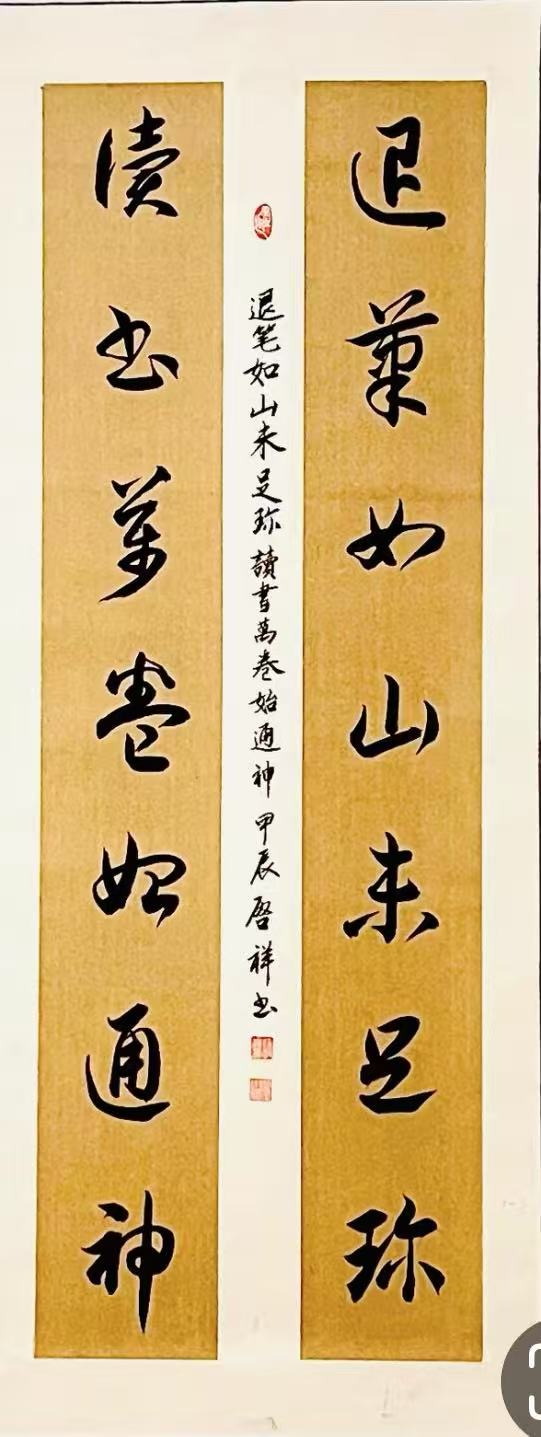 退筆如山未足珎
讀书萬卷始通神
退笔如山未足珎讀書萬卷始通神甲辰啓祥书